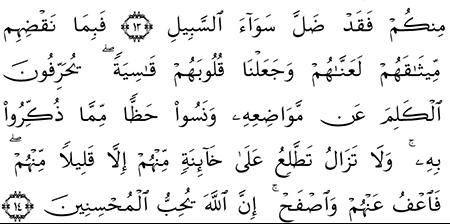 مِنكُمْ فَقَدْ ضَلَّ سَوَآءَ ٱلسَّبِيلِ ﴿١٣﴾ فَبِمَا نَقْضِهِم
مِّيثَٰقَهُمْ لَعَنَّٰهُمْ وَجَعَلْنَا قُلُوبَهُمْ قَٰسِيَةًۖ يُحَرِّفُونَ
ٱلْكَلِمَ عَن مَّوَاضِعِهِۦ وَنَسُوا۟ حَظًّا مِّمَّا ذُكِّرُوا۟
بِهِۦۚ وَلَا تَزَالُ تَطَّلِعُ عَلَىٰ خَآئِنَةٍ مِّنْهُمْ إِلَّا قَلِيلًا مِّنْهُمْۖ
فَٱعْفُ عَنْهُمْ وَٱصْفَحْۚ إِنَّ ٱللَّهَ يُحِبُّ ٱلْمُحْسِنِينَ ﴿١٤﴾